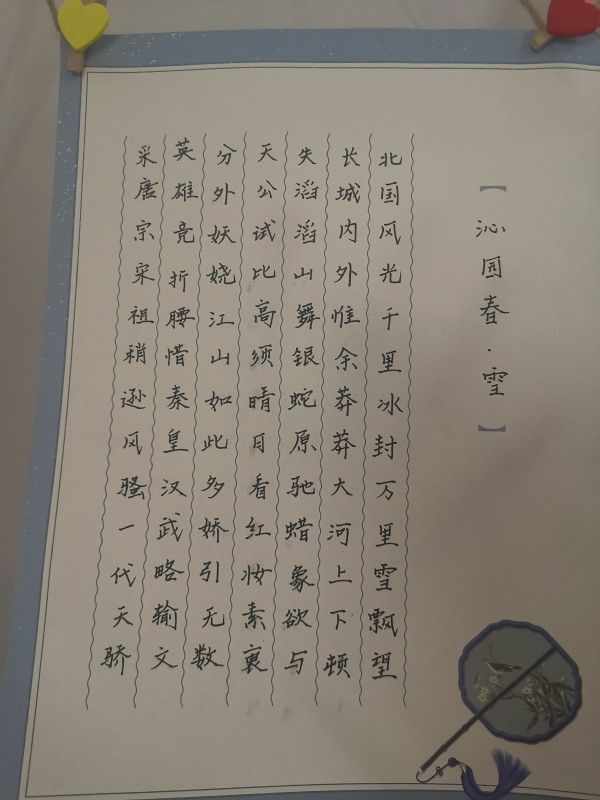 【沁园春·雪】
北国风光千里冰封万里雪飘望
长城内外惟余莽莽大河上下顿
失滔滔山舞银蛇原驰蜡象欲与
天公试比高须晴日看红妆素裹
分外妖娆江山如此多娇引无数
英雄竞折腰惜秦皇汉武略输文
采唐宗宋祖稍逊风骚一代天骄